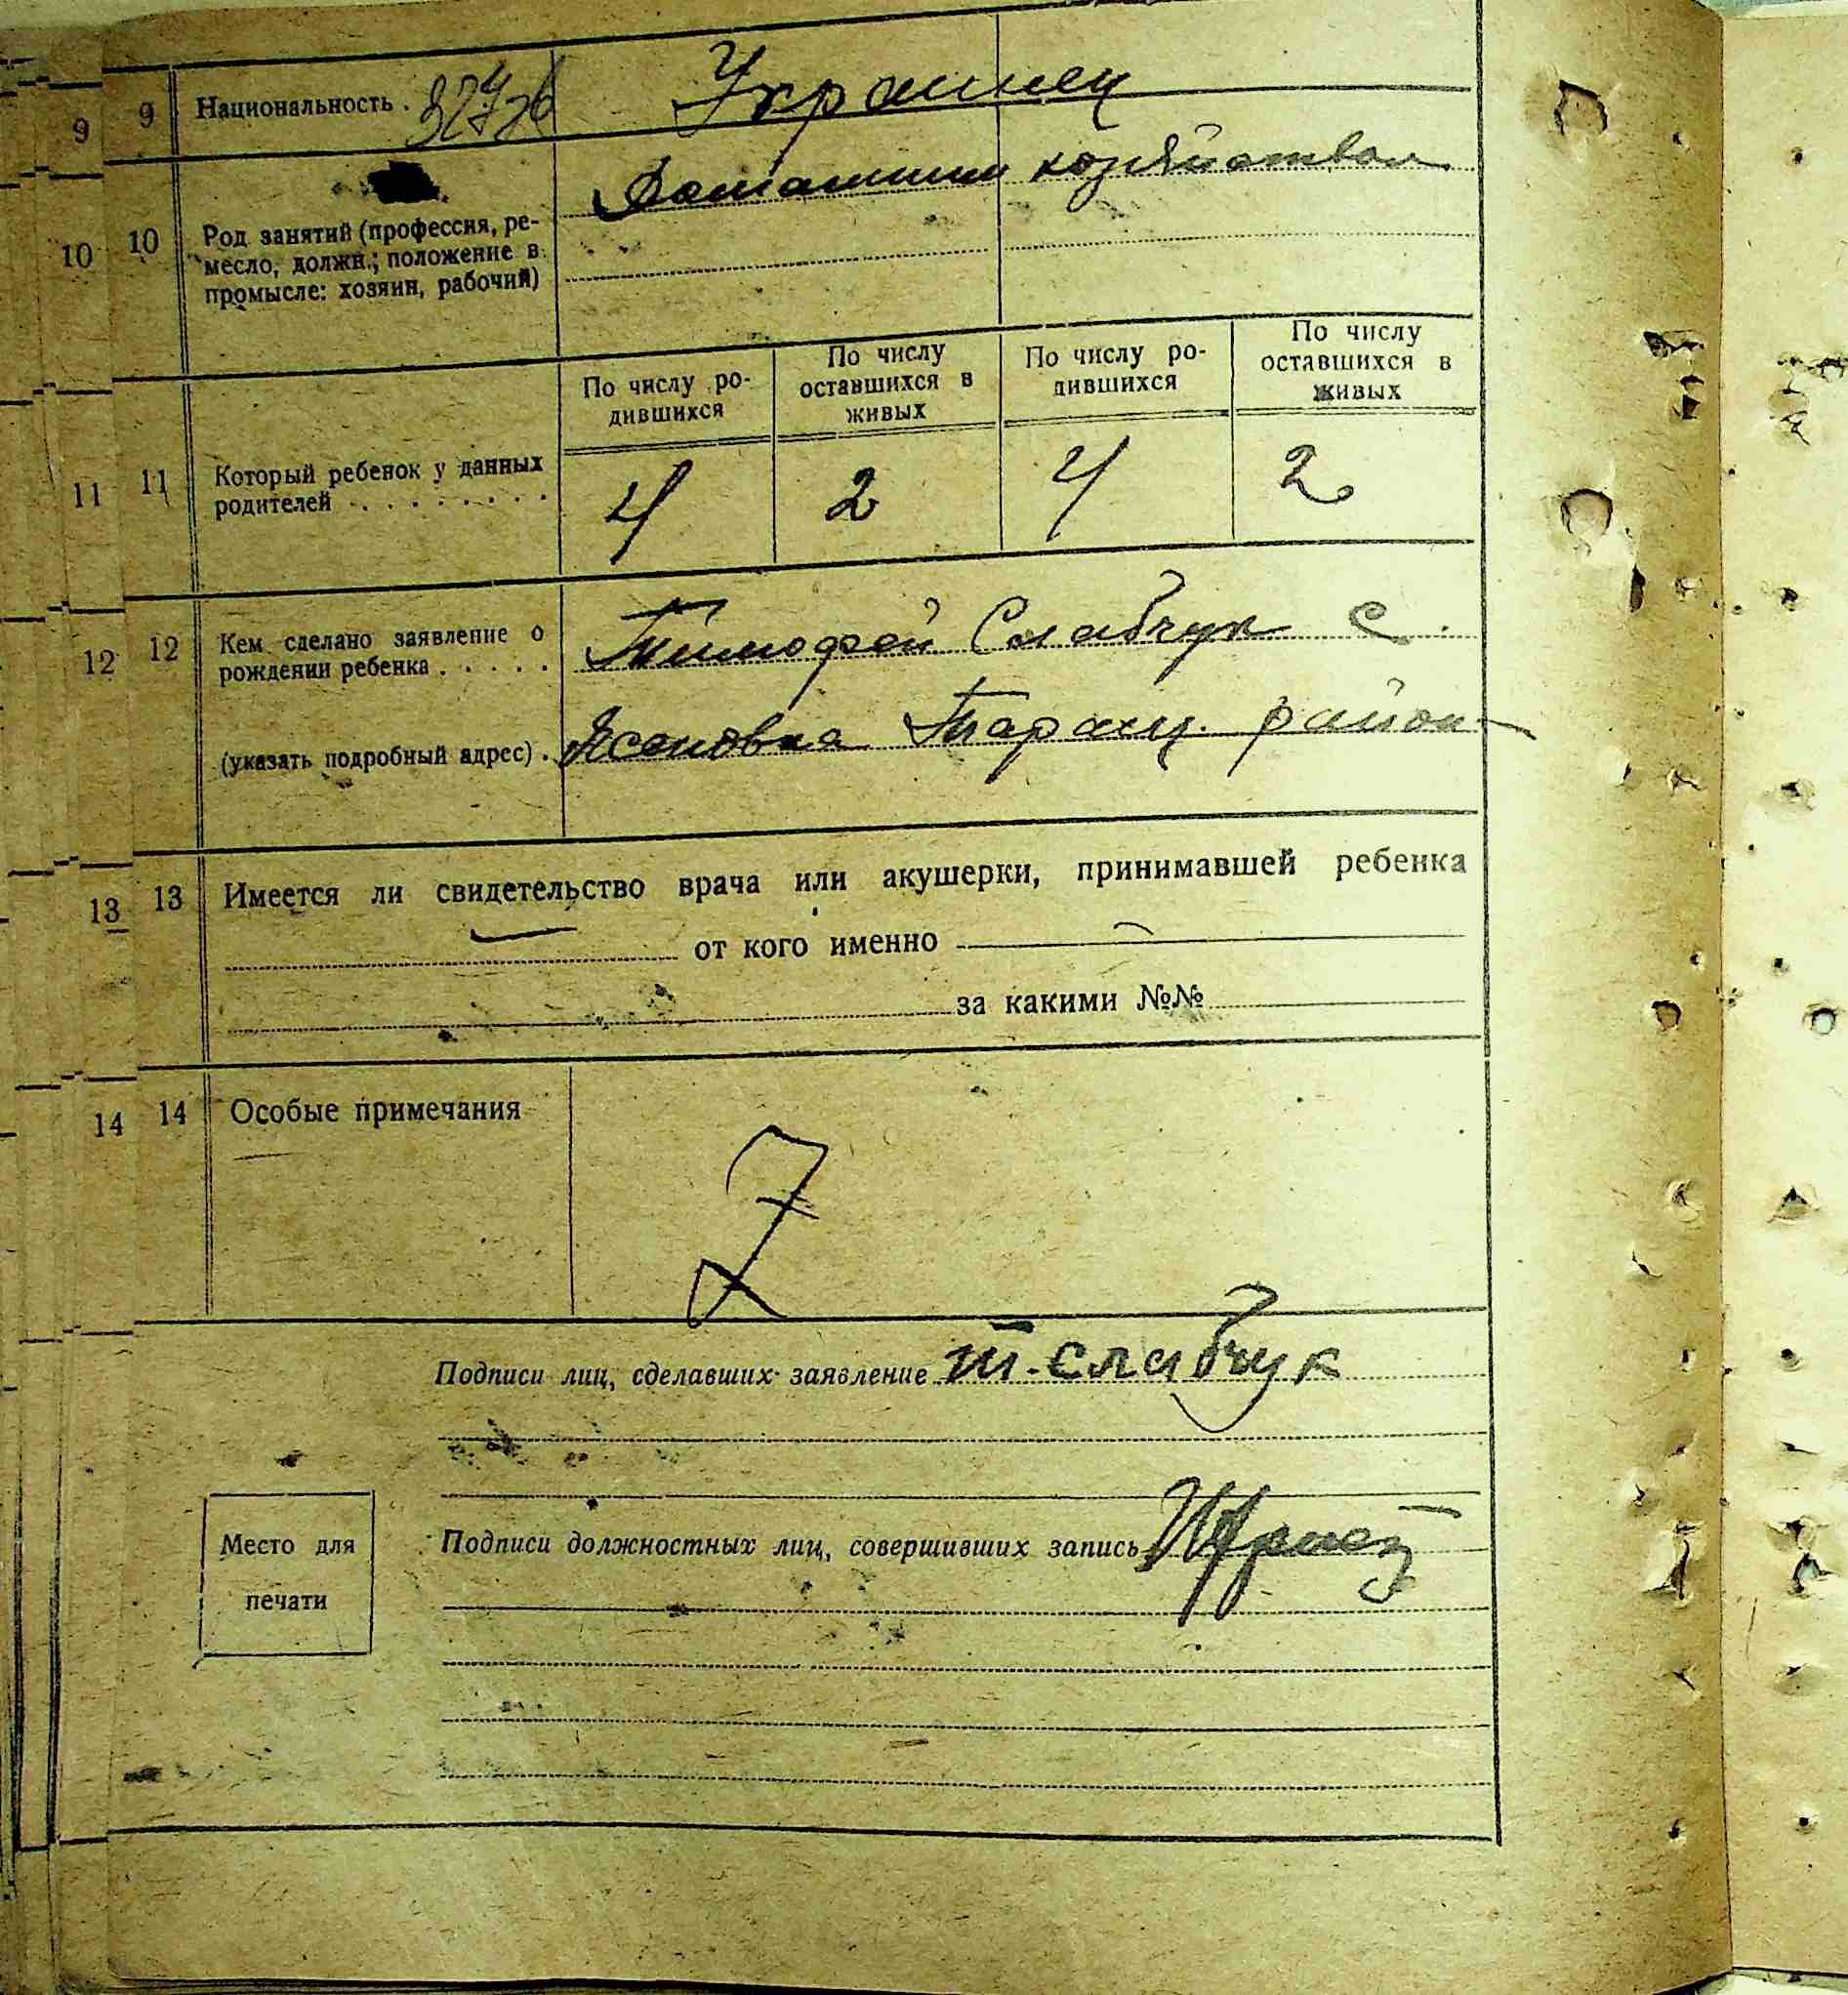 9 9 Национальность . Украинец
Домашним хозяйством
10 10 Род занятий (профессия, ре-
месло, должн.; положение в
промысле: хозяин, рабочий)
По числу ро-
дившихся
По числу
оставшихся в
живых
По числу ро-
дившихся
По числу
оставшихся в
живых
11 11 Который ребенок у данных
родителей . . . . . . . .
4 2 4 2
12 12 Кем сделано заявление о
рождении ребенка . . . . .
Тимофей Слабчук с.
(указать подробный адрес) . Ясеновка Таращ. район
13 13 Имеется ли свидетельство врача или акушерки, принимавшей ребенка
от кого именно
за какими №№
14 14 Особые примечания
Подписи лиц, сделавших заявление т. Слабчук
Место для
печати
Подписи должностных лиц, совершивших запись